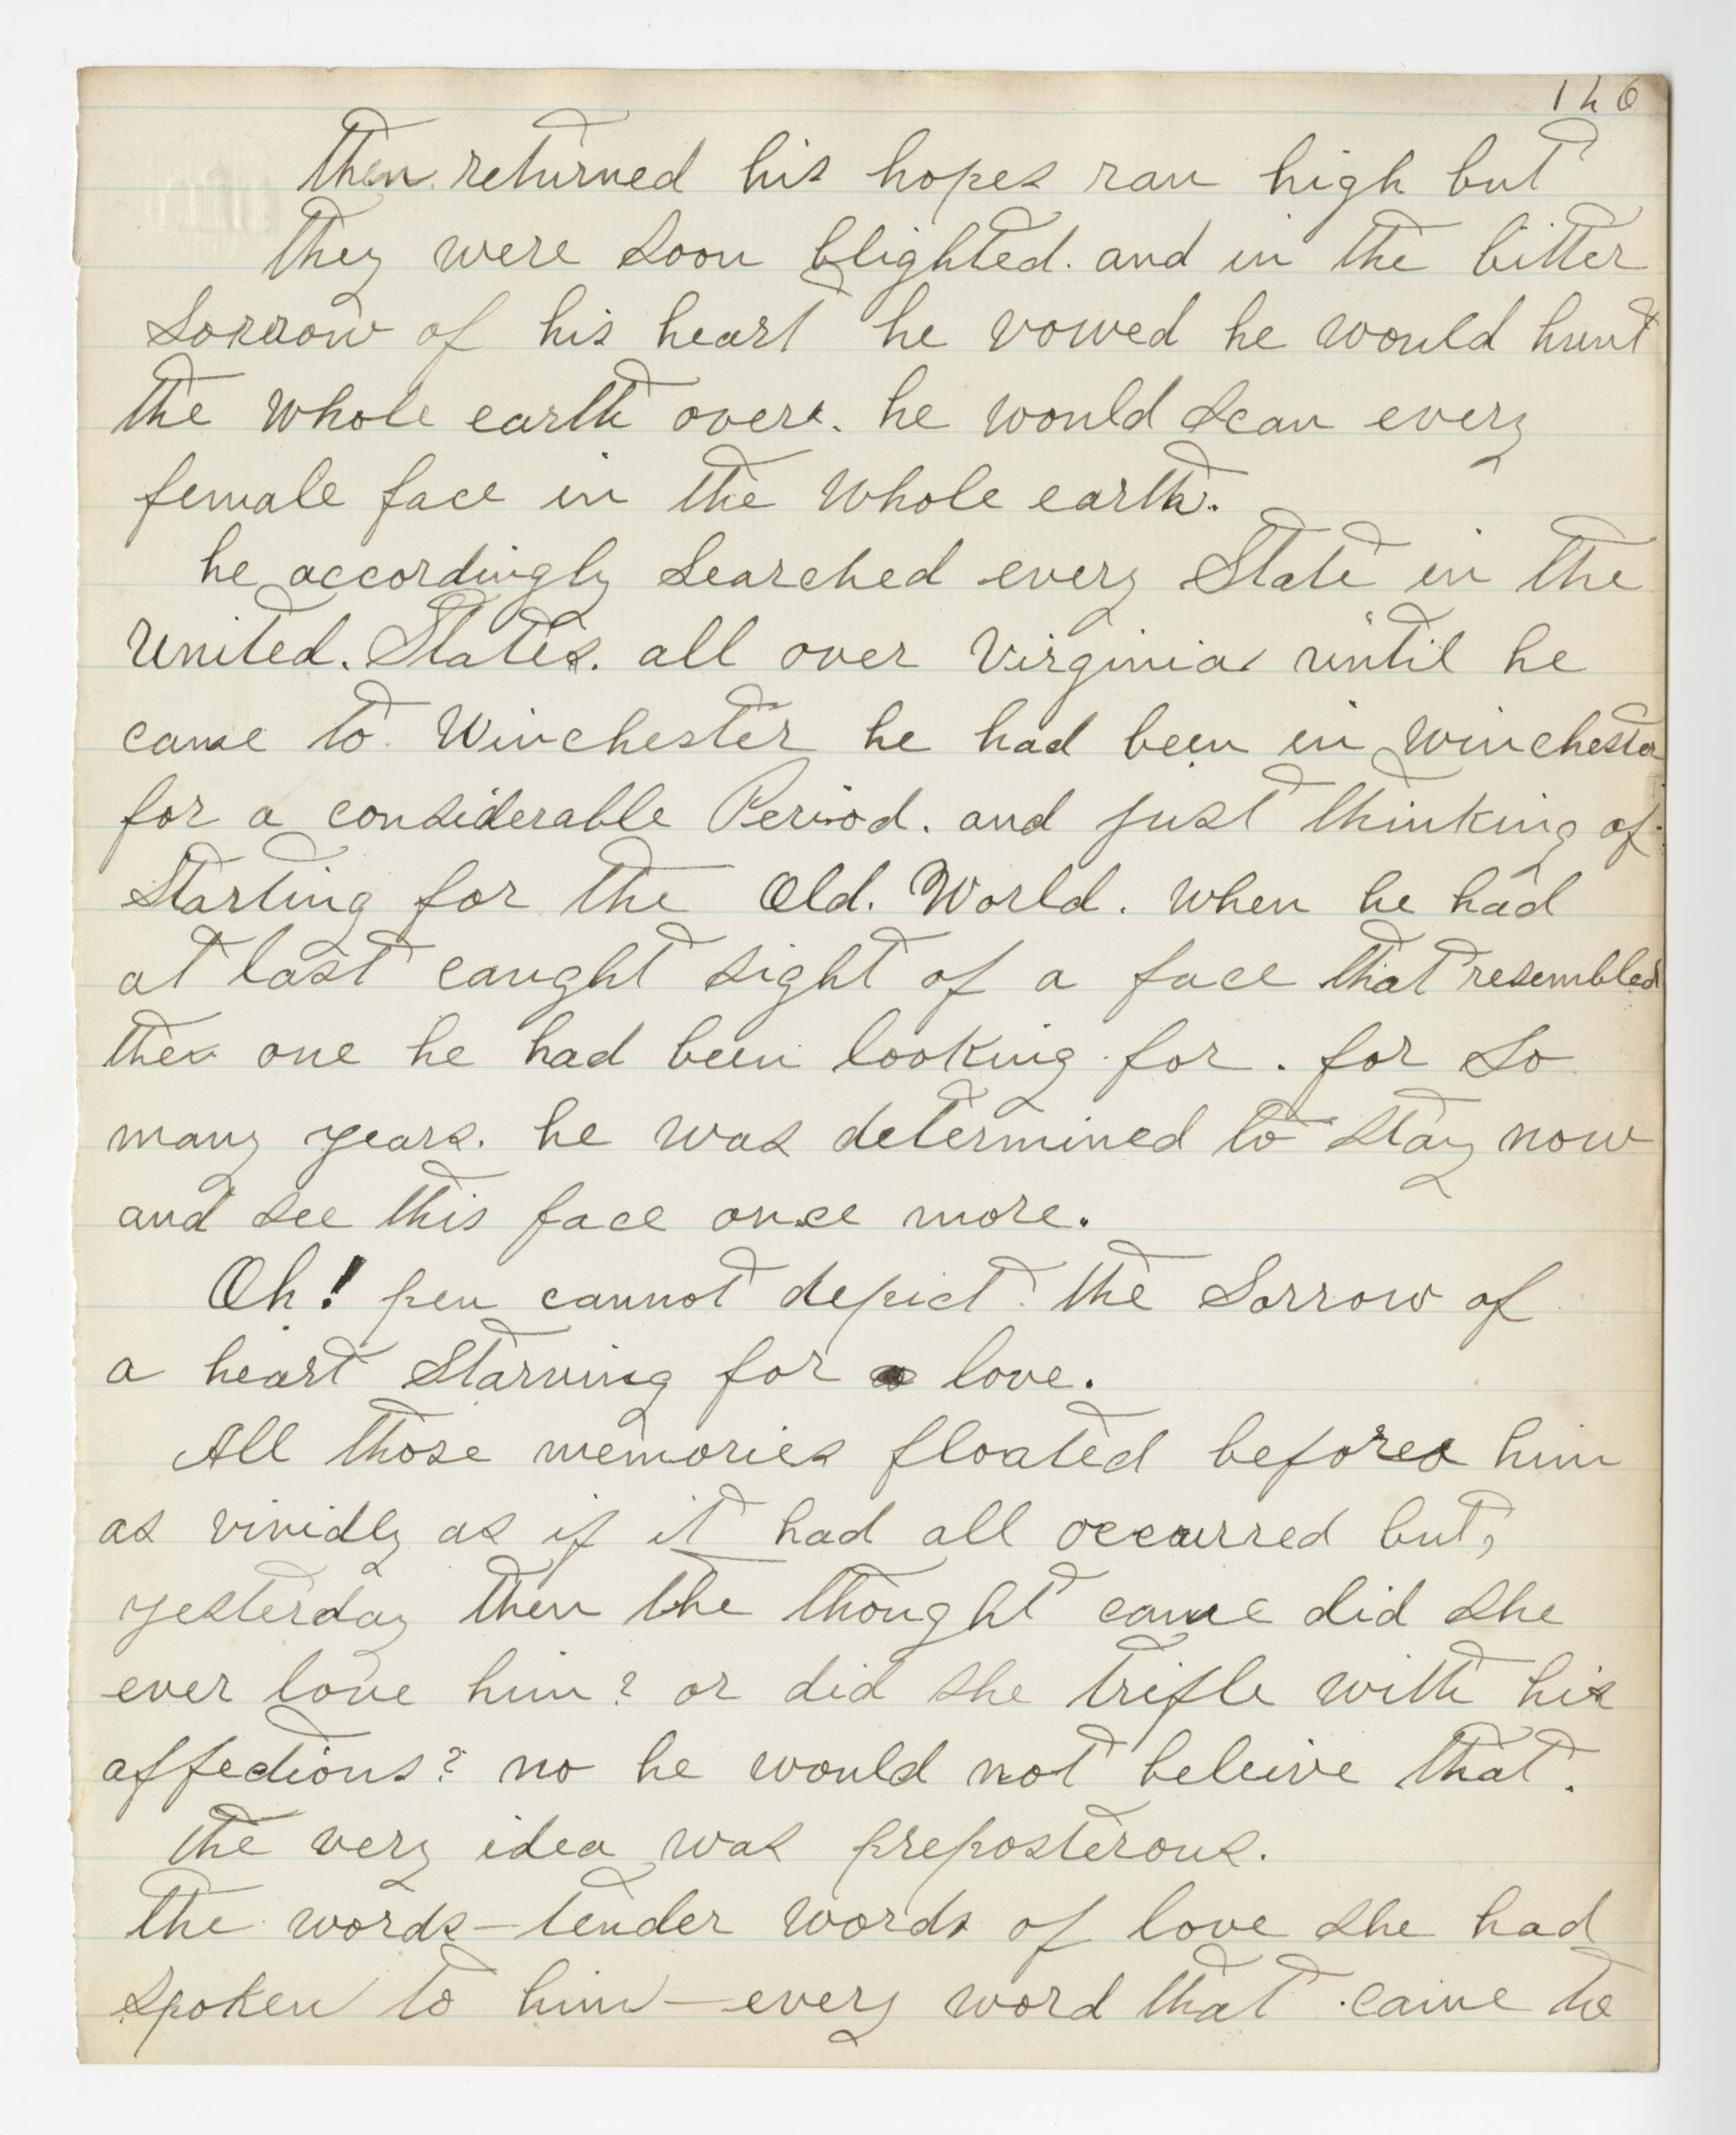 126
then returned his hopes ran high but
they were soon blighted. and in the bitter
Sorrow of his heart he vowed he would hunt
the whole earth over. he would scan every
female face in the whole earth.
he accordingly searched every State in the
United. States. all over Virginia until he
came to Winchester he had been in Winchester
for a considerable Period. and just thinking of
Starting for the Old. World. when he had
at last caught sight of a face that resembled
the one he had been looking for. for so
many years. he was determined to stay now
and see this face once more.
Oh! pen cannot depict the Sorrow of
a heart Starving for love.
All those memories floated before him
as vividly as if it had all occurred but,
yesterday then the thought came did she
ever love him? or did she trifle with his
affections? no he would not beleive that.
the very idea was preposterous.
The words—tender words of love she had
spoken to him—every word that came to